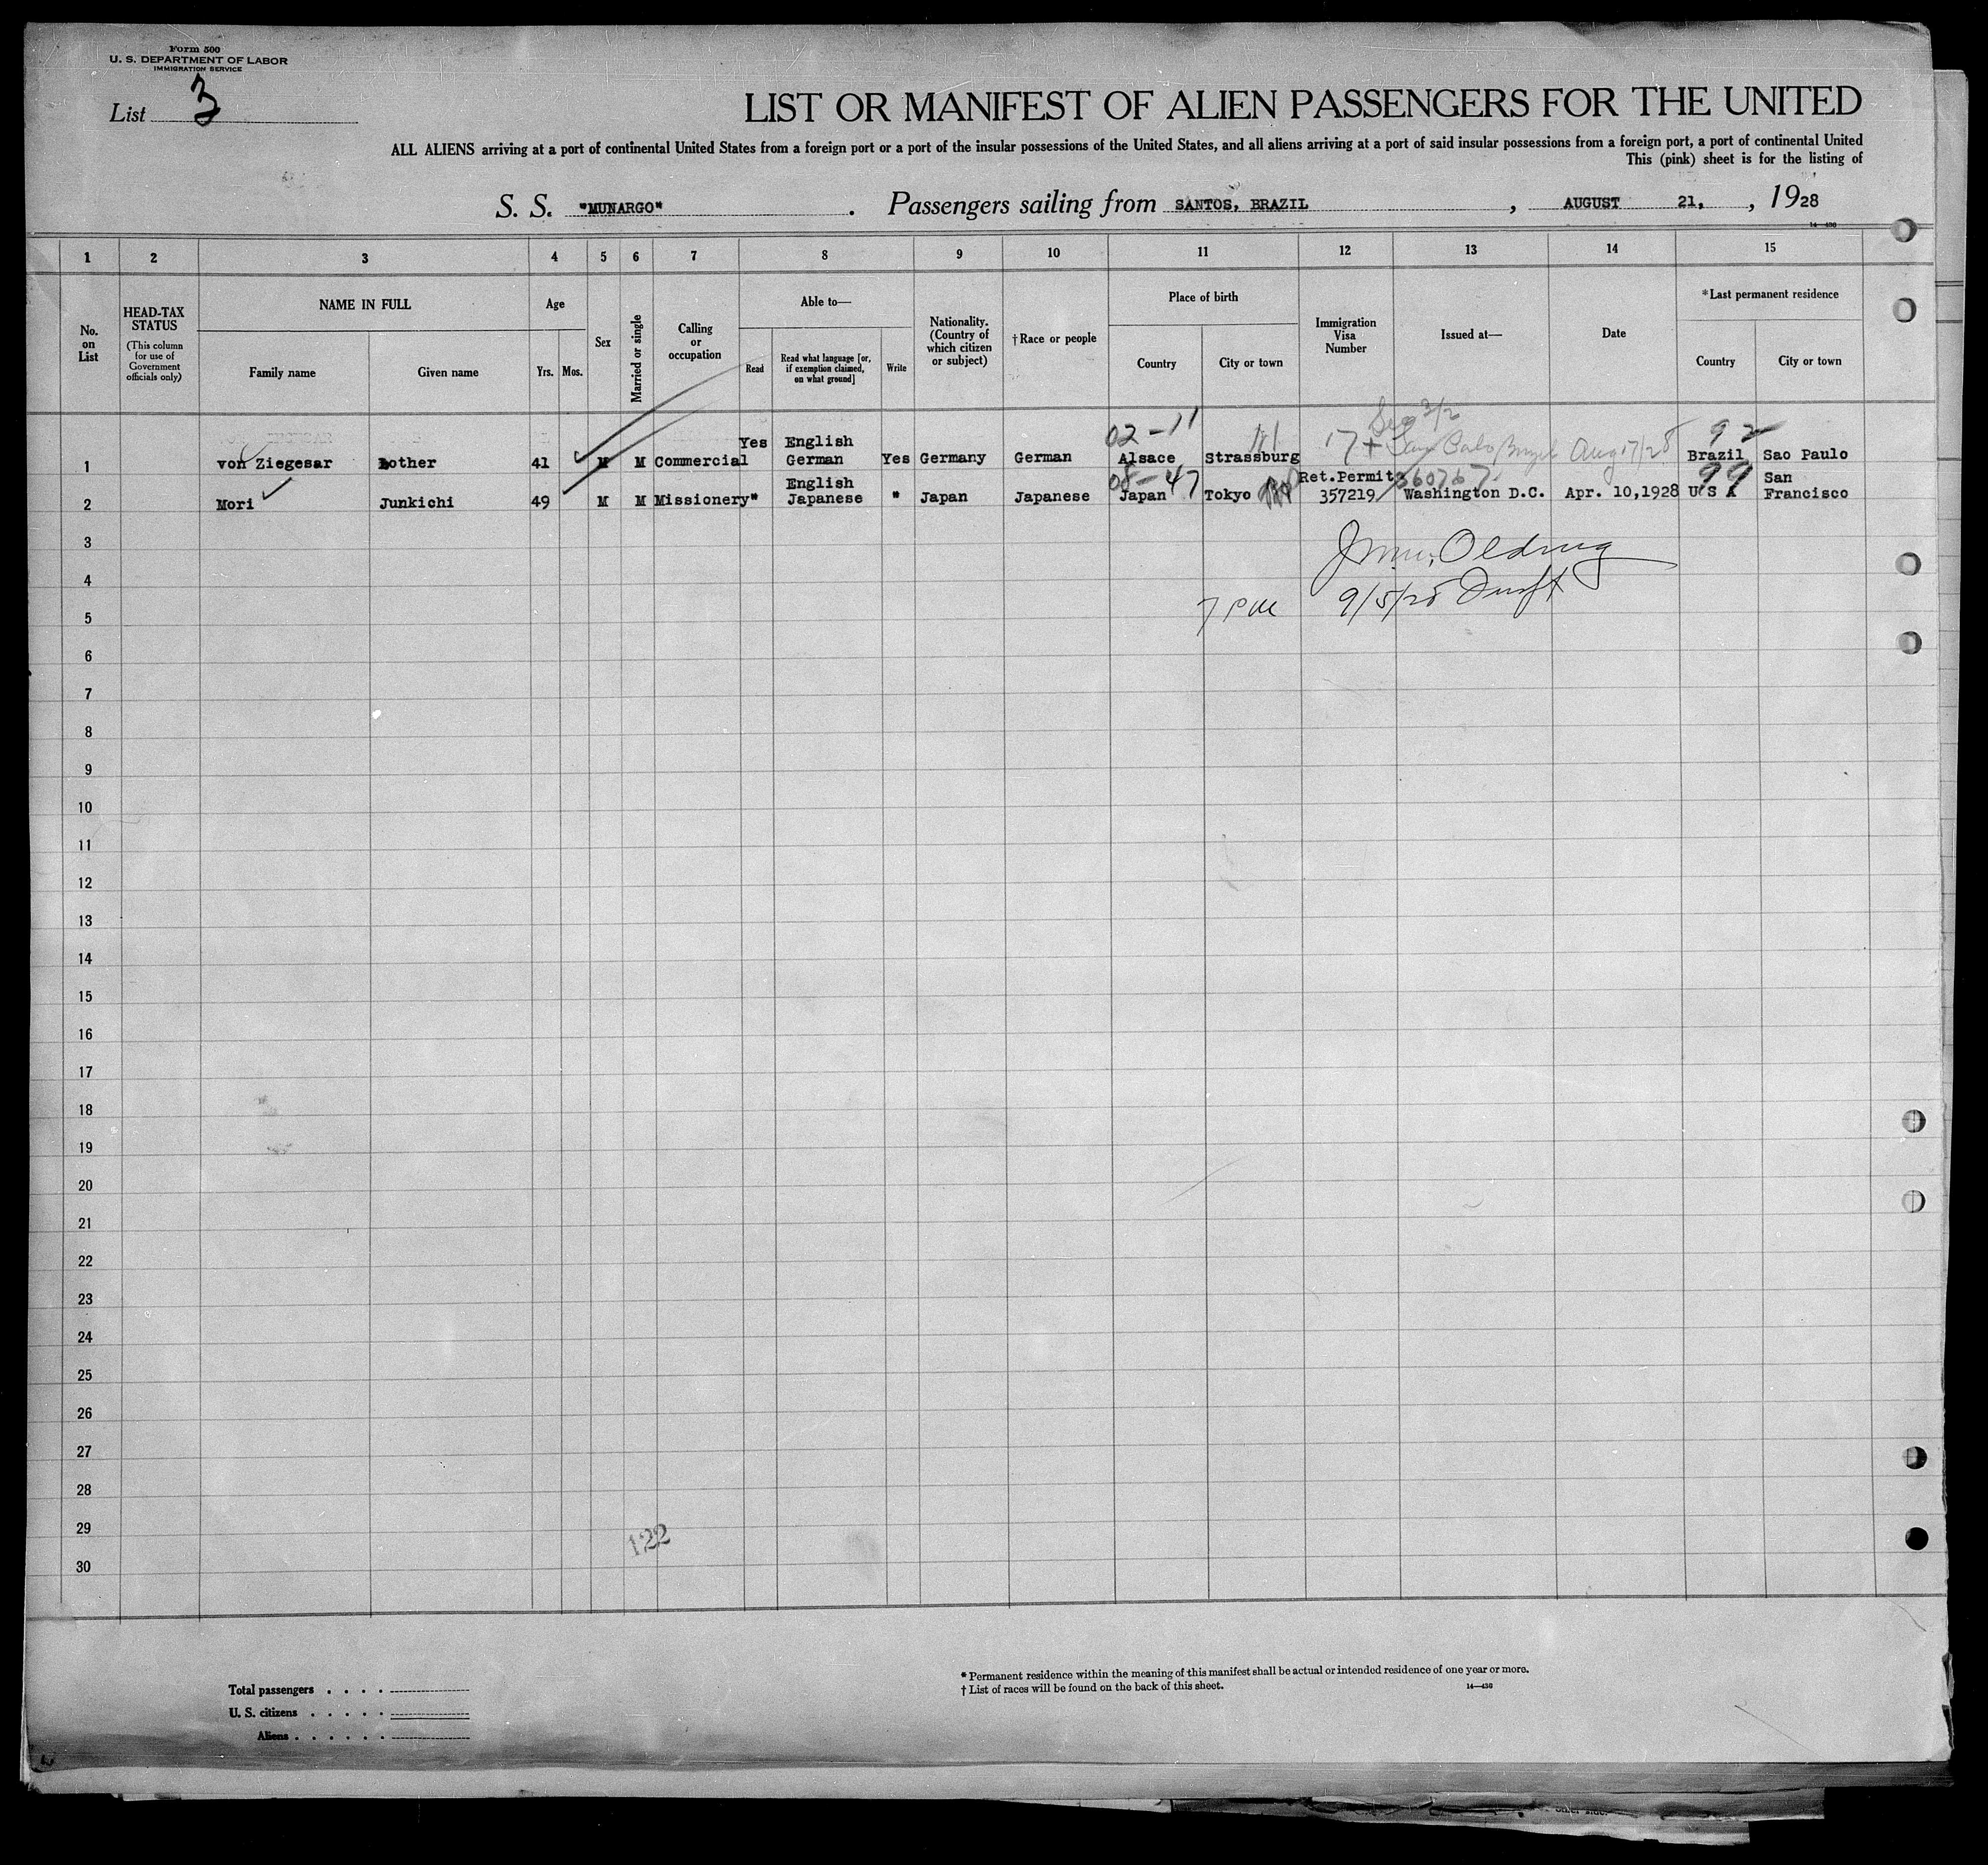 Form 500
U. S. DEPARTMENT OF LABOR
IMMIGRATION SERVICE
List 3
LIST OR MANIFEST OF ALIEN PASSENGERS FOR THE UNITED
ALL ALIENS arriving at a port of continental United States from a foreign port or a port of the insular possessions of the United States, and all aliens arriving at a port of said insular possessions from a foreign port, a port of continental United
This (pink) sheet is for the listing of
S. S. "MUNARGO" . Passengers sailing from SANTOS, BRAZIL , AUGUST 21, , 1928
14—430
1 2 3 4 5 6 7 8 9 10 11 12 13 14 15
No. on List
HEAD-TAX STATUS
(This column for use of Government officials only)
NAME IN FULL
Family name Given name
Age
Yrs. Mos.
Sex
Married or single
Calling or occupation
Able to—
Read
Read what language [or, if exemption claimed, on what ground]
Write
Nationality. (Country of which citizen or subject)
†Race or people
Place of birth
Country City or town
Immigration Visa Number
Issued at—
Date
*Last permanent residence
Country City or town
02-11 92
Yes English
1 von Ziegesar Lother 41 M M Commercial German Yes Germany German Alsace Strassburg 17 Aug 17/28 Brazil Sao Paulo
English 08-47 Ret.Permit 360767 99 San
2 Mori Junkichi 49 M M Missionery" Japanese " Japan Japanese Japan Tokyo 357219 Washington D.C. Apr. 10,1928 U S A Francisco
3
4
7 PM 9/5/28
5
6
7
8
9
10
11
12
13
14
15
16
17
18
19
20
21
22
23
24
25
26
27
28
29
122
30
Total passengers . . . .
U. S. citizens . . . . .
Aliens . . . . . .
* Permanent residence within the meaning of this manifest shall be actual or intended residence of one year or more.
† List of races will be found on the back of this sheet.
14—430